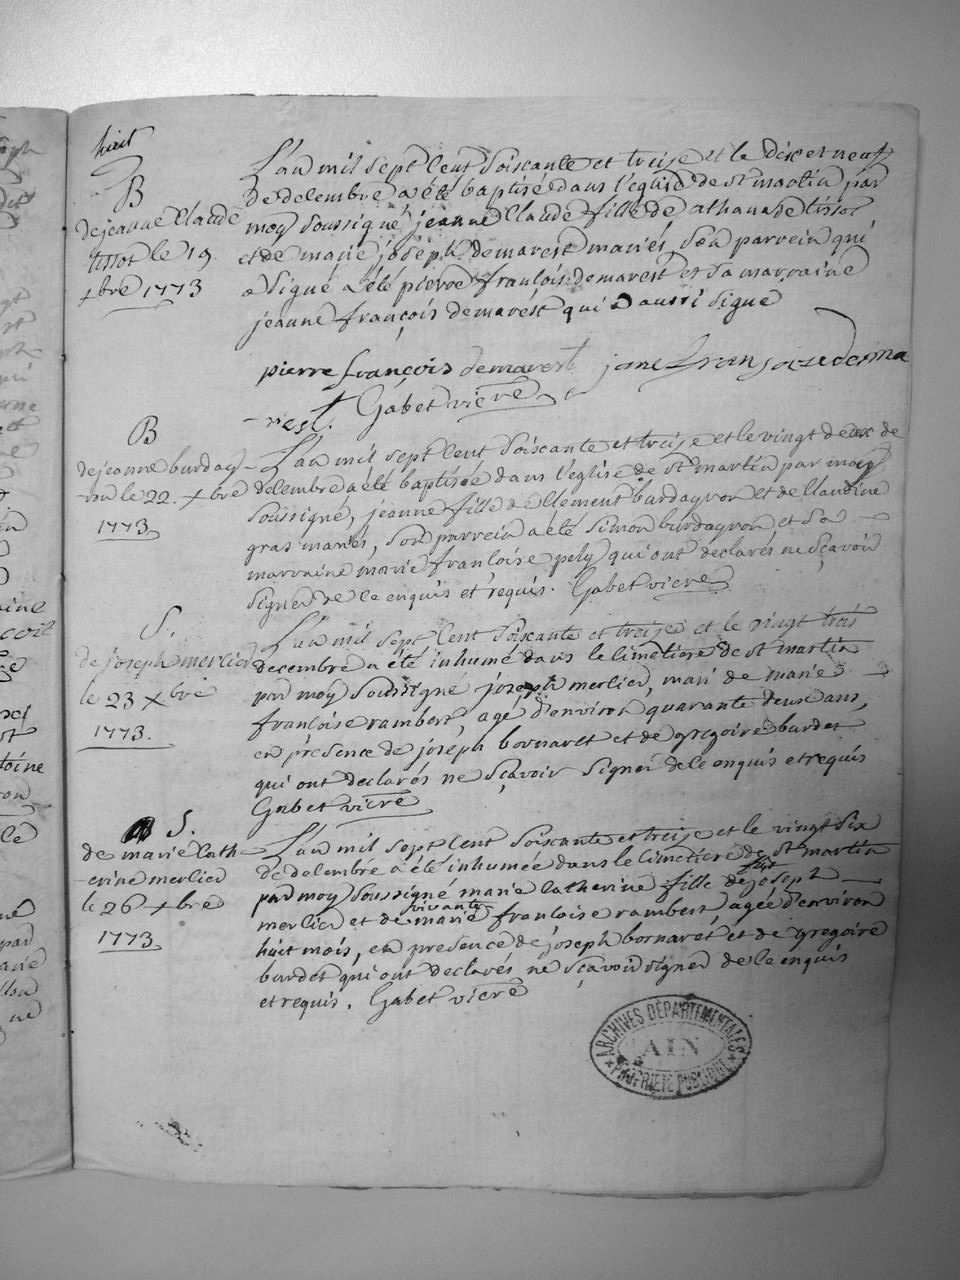 huit
B
de jeanne Claude
tissot le 19
xbre 1773
L'an mil sept cent soiscante et treise et le dixe et neuf
de decembre a été baptisé dans l'eglise de st martin par
moy soussigné jeanne Claude fille de athanade tissot
et de marie joseph demarest mariés, son parrein qui
a signé a été pierre francois demarest et sa marraine
jeanne françois demarest qui a aussi signé
pierre françois demarest jane fransoise dema
-rest. Gabet vicre
B
de jeanne burday-
-ron le 22. xbre
1773
L'an mil sept cent soiscante et treise et le vingt deux de
decembre a été baptisée dans l'église de st martin par moy
soussigné, jeanne fille de clement burdayron et de claudine
gras mariés, son parrein a été simon burdayron et sa
marraine marie francoise pely qui ont declarés ne sçavoir
signer de ce enquis et requis. Gabet vicre
S.
de joseph merlier
le 23 xbre
1773.
L'an mil sept cent soiscante et treise et le vingt trois
decembre a été inhumé dans le cimetiere de st martin
par moy soussigné joseph merlier, mari de marie
francoise rambert, agé d'environ quarante deux ans,
en présence de joseph bornaret et de gregoire burdet
qui ont declarés ne sçavoir signer de ce enquis et requis
Gabet vicre
S.
de marie cath-
-erine merlier
le 26 xbre
1773
L'an mil sept cent soiscante et treise et le vingt six
de decembre a été inhumée dans le cimetiere de st martin
par moy soussigné marie catherine fille de joseph
merlier et de vivante marie francoise rambert, agée d'environ
huit mois, en presence de joseph bornaret et de gregoire
burdet qui ont declarés ne sçavoir signer de ce enquis
et requis. Gabet vicre
ARCHIVES DÉPARTEMENTALES
AIN
PROPRIÉTÉ PUBLIQUE